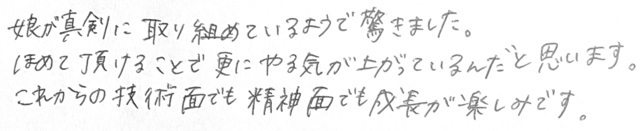 娘が真剣に取り組めているようで驚きました。
ほめて頂けることで更にやる気が上がっているんだと思います。
これからの技術面でも精神面でも成長が楽しみです。